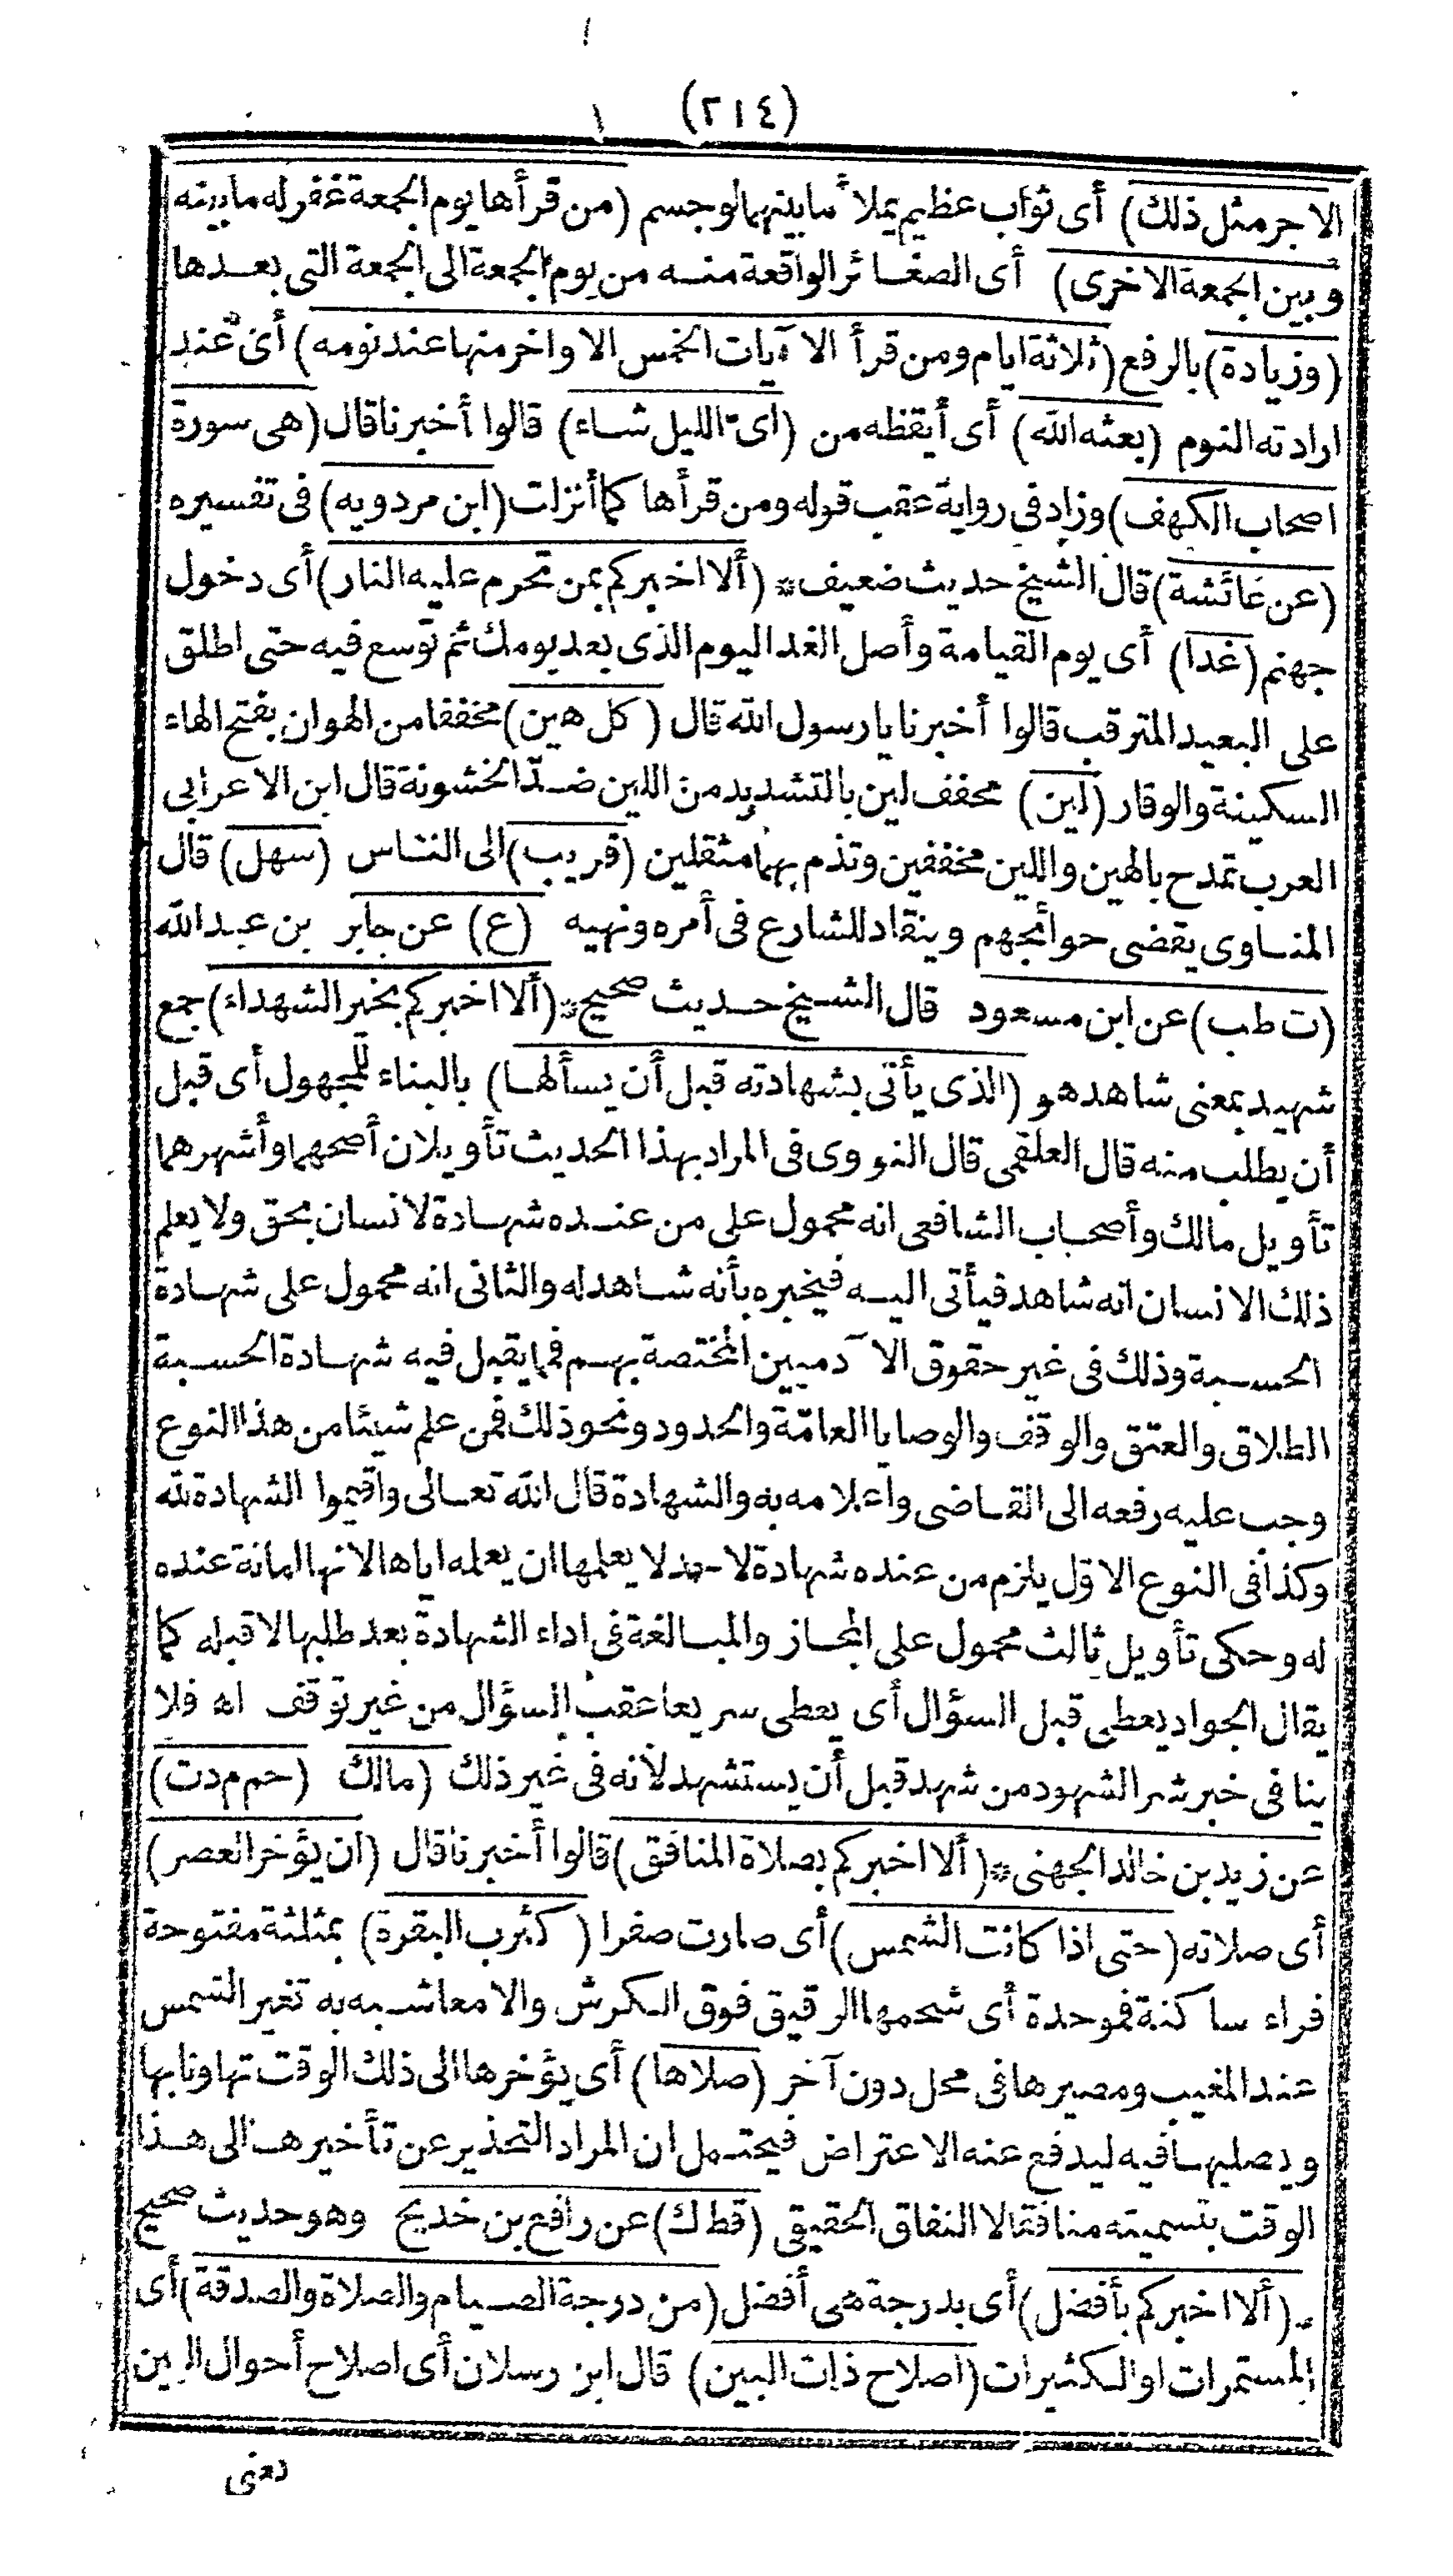 (٢١٤)
الاجر مثل ذلك) أى ثواب عظيم يملأ ما بينهما لو جسم (من قرأها يوم الجمعة غفر له ما بينه
وبين الجمعة الاخرى) أى الصغائر الواقعة منه من يوم الجمعة الى الجمعة التى بعدها
(وزيادة) بالرفع (ثلاثة ايام ومن قرأ الآيات الخمس الاواخر منها عند نومه) أى عند
ارادته النوم (بعثه الله) أى أيقظه من (اى الليل شاء) قالوا أخبرنا قال (هى سورة
اصحاب الكهف) وزاد فى رواية عقب قوله ومن قرأها كما أنزلت (ابن مردويه) فى تفسيره
(عن عائشة) قال الشيخ حديث ضعيف * (ألا اخبركم بمن تحرم عليه النار) أى دخول
جهنم (غدا) أى يوم القيامة وأصل الغد اليوم الذى بعد يومك ثم توسع فيه حتى اطلق
على البعيد المترقب قالوا أخبرنا يا رسول الله قال (كل هين) مخففا من الهوان بفتح الهاء
السكينة والوقار (لين) مخفف لين بالتشديد من اللين ضدّ الخشونة قال ابن الاعرابى
العرب تمدح بالهين واللين مخففين وتذم بهما مثقلين (قريب) الى الناس (سهل) قال
المناوى يقضى حوائجهم وينقاد للشارع فى أمره ونهيه (ع) عن جابر بن عبد الله
(ت طب) عن ابن مسعود قال الشيخ حديث صحيح * (ألا اخبركم بخير الشهداء) جمع
شهيد بمعنى شاهد هو (الذى يأتى بشهادته قبل أن يسألها) بالبناء للمجهول أى قبل
أن يطلب منه قال العلقمى قال النووى فى المراد بهذا الحديث تأويلان أصحهما وأشهرهما
تأويل مالك وأصحاب الشافعى انه محمول على من عنده شهادة لانسان بحق ولا يعلم
ذلك الانسان انه شاهد فيأتى اليه فيخبره بأنه شاهد له والثانى انه محمول على شهادة
الحسبة وذلك فى غير حقوق الآدميين المختصة بهم فما يقبل فيه شهادة الحسبة
الطلاق والعتق والوقف والوصايا العامّة والحدود ونحو ذلك فمن علم شيئا من هذا النوع
وجب عليه رفعه الى القاضى واعلامه به والشهادة قال الله تعالى واقيموا الشهادة لله
وكذا فى النوع الاوّل يلزم من عنده شهادة لا حد لا يعلمها ان يعلمه اياها لانها امانة عنده
له وحكى تأويل ثالث محمول على المجاز والمبالغة فى اداء الشهادة بعد طلبها لا قبله كما
يقال الجواد يعطى قبل السؤال أى يعطى سريعا عقب السؤال من غير توقف اه فلا
ينافى خبر شر الشهود من شهد قبل أن يستشهد لأنه فى غير ذلك (مالك (حم م د ت)
عن زيد بن خالد الجهنى * (ألا اخبركم بصلاة المنافق) قالوا أخبرنا قال (ان يؤخر العصر)
أى صلاته (حتى اذا كانت الشمس) أى صارت صفرا (كثرب البقرة) بمثلثة مفتوحة
فراء ساكنة فموحدة أى شحمها الرقيق فوق الكرش والامعا شبه به تغير الشمس
عند المغيب ومصيرها فى محل دون آخر (صلاها) أى يؤخرها الى ذلك الوقت تهاونا بها
ويصليها فيه ليدفع عنه الاعتراض فيحتمل ان المراد التحذير عن تأخيرها الى هذا
الوقت بتسميته منافقا لا النفاق الحقيقى (قط ك) عن رافع بن خديج وهو حديث صحيح
* (ألا اخبركم بأفضل) أى بدرجة هى أفضل (من درجة الصيام والصلاة والصدقة) أى
المستمرات او الكثيرات (اصلاح ذات البين) قال ابن رسلان أى اصلاح أحوال البين
يعنى